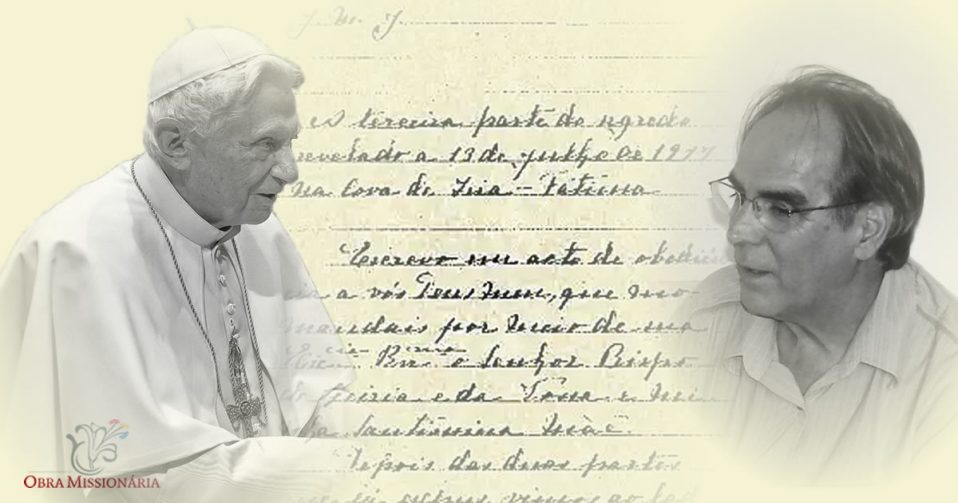 J. M. J.
terceira parte do segredo
revelado a 13 de julho de 1917
na Cova da Iria - Fatima
Escrevo em acto de obediên
cia a vós Deus meu, que mo
mandais por meio de sua
Rev.ma o Senhor Bispo
Leiria e da Vossa e mi
santissima Mãe.
Depois das duas partes
vimos ao lad
OBRA MISSIONÁRIA